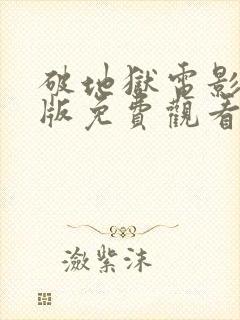 破地獄電影
版免費觀看
瀲紫沫